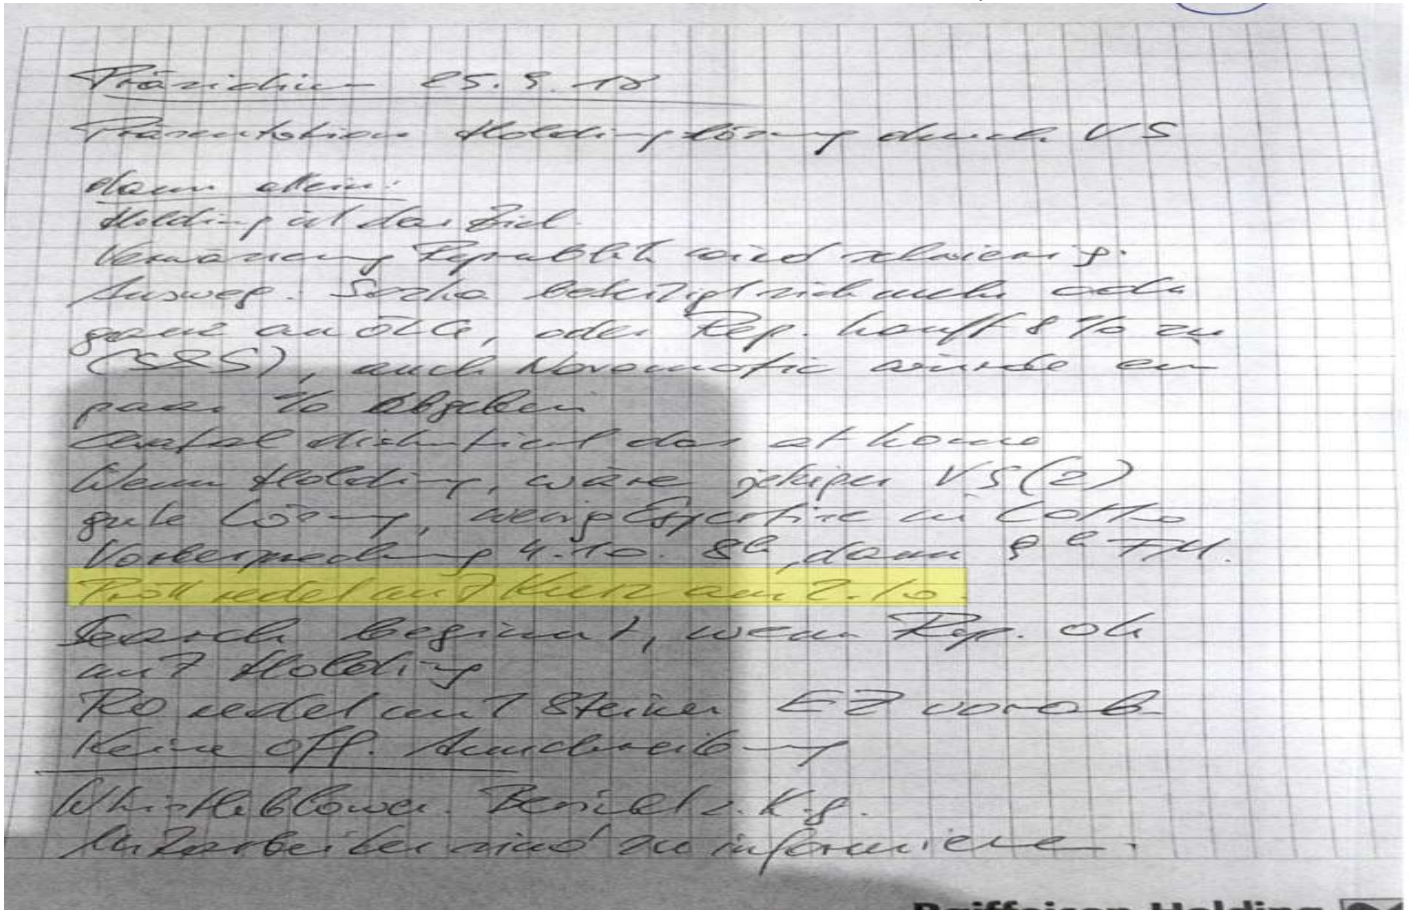 Präsidium 25.9.18
Präsentation Holdinglösung durch VS
dann allein:
Holding ist das Ziel.
Verwässerung Republik wird schwierig.
Ausweg: Sazka beteiligt sich auch oder
ganz an ÖLG, oder Rep. kauft 8% zu
(S&S), auch Novomatic würde ein
paar % abgeben
Chvatal diskutiert das at home
Wenn Holding, wäre jetziger VS(2)
gute Lösung, wenig Expertise in Lotto
Vorbesprechung 4.10. 8h, dann 9h FM.
Pröll redet mit Kurz am 2.10.
Search beginnt, wenn Rep. ok
mit Holding
RO redet mit Steiner EZ vorab
Keine off. Ausschreibung
Whistleblower. Bericht z. K. g.
Mitarbeiter sind zu informieren.
Raiffeisen-Holding